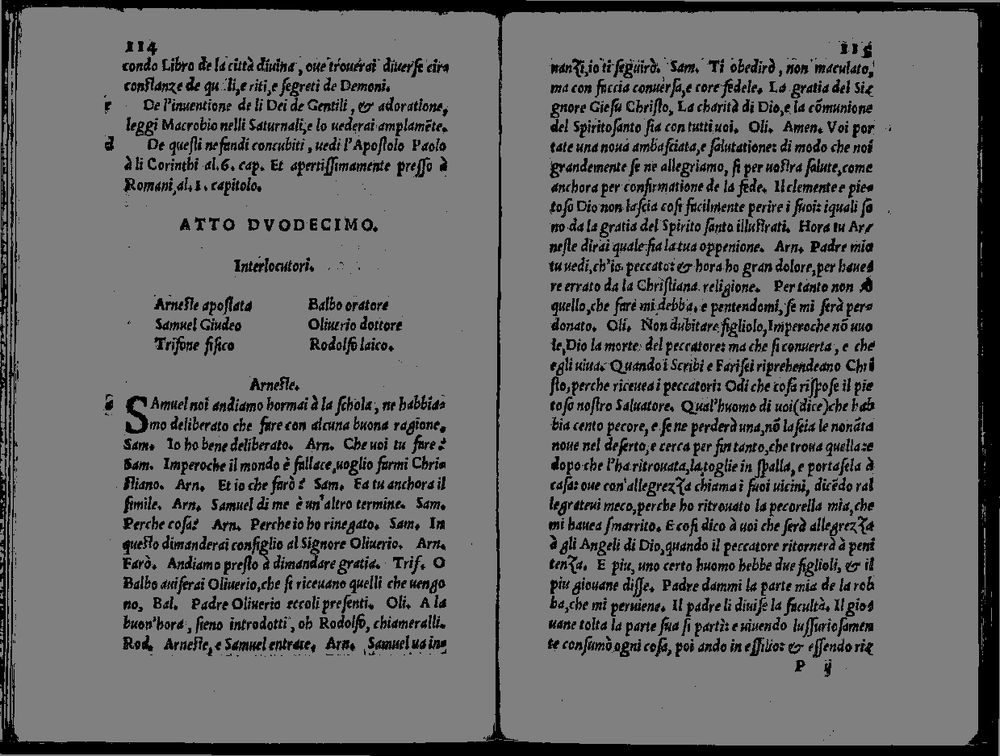 114
condo Libro de la città diuina, oue trouerai diuerse circ
constanze de qu li, e riti, e segreti de Demoni.
c De l'inuentione de li Dei de Gentili, & adoratione,
leggi Macrobio nelli Saturnali, e lo uederai amplamẽte.
d De questi nefandi concubiti, uedi l'Apostolo Paolo
à li Corinthi al. 6. cap. Et apertissimamente presso à
Romani, al. 1. capitolo.
ATTO DVODECIMO.
Interlocutori.
Arneste apostata Balbo oratore
Samuel Giudeo Oliuerio dottore
Trifone fisico Rodolfo laico.
Arneste.
a SAmuel noi andiamo hormai à la schola, ne habbia-
mo deliberato che fare con alcuna buona ragione.
Sam. Io ho bene deliberato. Arn. Che uoi tu fare?
Sam. Imperoche il mondo è fallace, uoglio farmi Chri-
stiano. Arn. Et io che farò? Sam. Fa tu anchora il
simile. Arn. Samuel di me è un'altro termine. Sam.
Perche cosa? Arn. Perche io ho rinegato. Sam. In
questo dimanderai consiglio al Signore Oliuerio. Arn.
Farò. Andiamo presto à dimandare gratia. Trif. O
Balbo auiserai Oliuerio, che si riceuano quelli che uengo
no, Bal. Padre Oliuerio eccoli presenti. Oli. A la
buon'hora, sieno introdotti, oh Rodolfo, chiameralli.
Rod. Arneste, e Samuel entrate. Arn. Samuel ua in-
115
nanzi, io ti seguirò. Sam. Ti obedirò, non maculato,
ma con faccia conuersa, e core fedele. La gratia del Si-
gnore Giesu Christo, La charità di Dio, e la cõmunione
del Spirito santo sia con tutti uoi. Oli. Amen. Voi por
tate una noua ambasciata, e salutatione: di modo che noi
grandemente se ne allegriamo, si per uostra salute, come
anchora per confirmatione de la fede. Il clemente e pie-
toso Dio non lascia cosi facilmente perire i suoi: iquali so
no da la gratia del Spirito santo illustrati. Hora tu Ar-
neste dirai quale sia la tua oppenione. Arn. Padre mio
tu uedi, ch'io peccato: & hora ho gran dolore, per haue-
re errato da la Christiana religione. Per tanto non sò
quello, che fare mi debba, e pentendomi, se mi serà per-
donato. Oli. Non dubitare figliolo, Imperoche nõ uuo
le, Dio la morte del peccatore: ma che si conuerta, e che
egli uiua. Quando i Scribi e Farisei riprehendeano Chri
sto, perche riceuea i peccatori: Odi che cosa rispose il pie
toso nostro Saluatore. Qual'huomo di uoi (dice) che hab
bia cento pecore, e se ne perderà una, nõ lascia le nonãta
noue nel deserto, e cerca per fin tanto, che troua quella: e
dopo che l'ha ritrouata, la toglie in spalla, e portasela à
casa: oue con'allegrezza chiama i suoi uicini, dicẽdo ral
legrateui meco, perche ho ritrouato la pecorella mia, che
mi hauea smarrito. E cosi dico à uoi che serà allegrezza
à gli Angeli di Dio, quando il peccatore ritornerà à peni
tenza. E piu, uno certo huomo hebbe due figlioli, & il
piu giouane disse. Padre dammi la parte mia de la rob
ba, che mi peruiene. Il padre li diuise la facultà. Il gio-
uane tolta la parte sua si partì: e uiuendo lussuriosamen
te consumò ogni cosa, poi ando in essilio: & essendo ri-
P ij